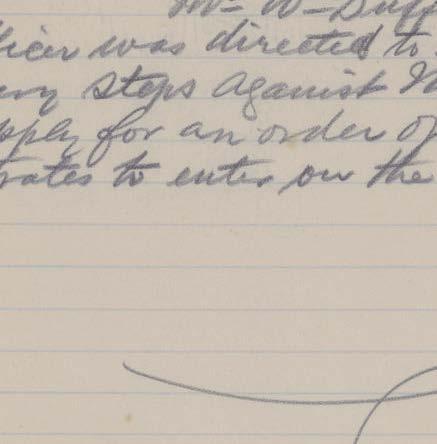 Mr W Duff
ficer was directed to
ary steps against M
pply for an order of
rates to enter on the